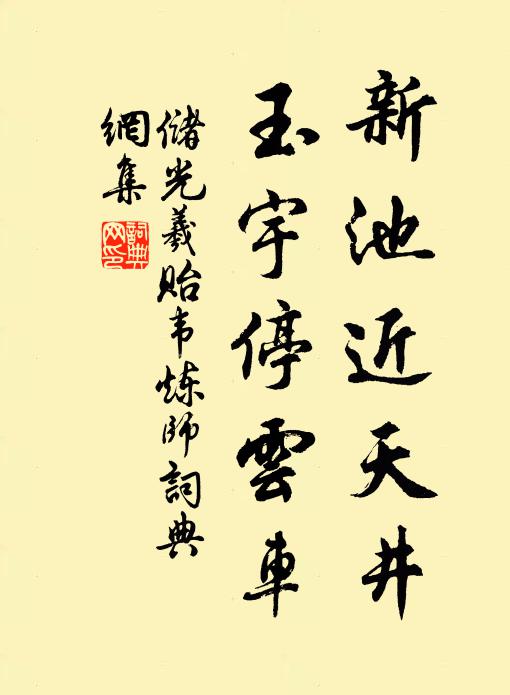 新池近天井
玉宇停雲車
儲光羲貽韦炼師詞典
網集
詞典
网印